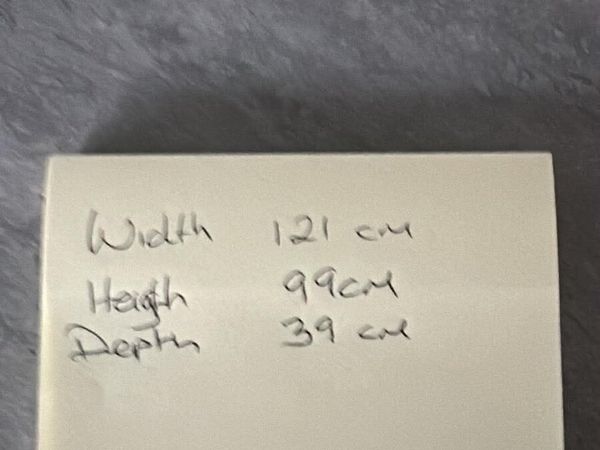 Width 121 cm
Heigth 99cm
Depth 39 cm